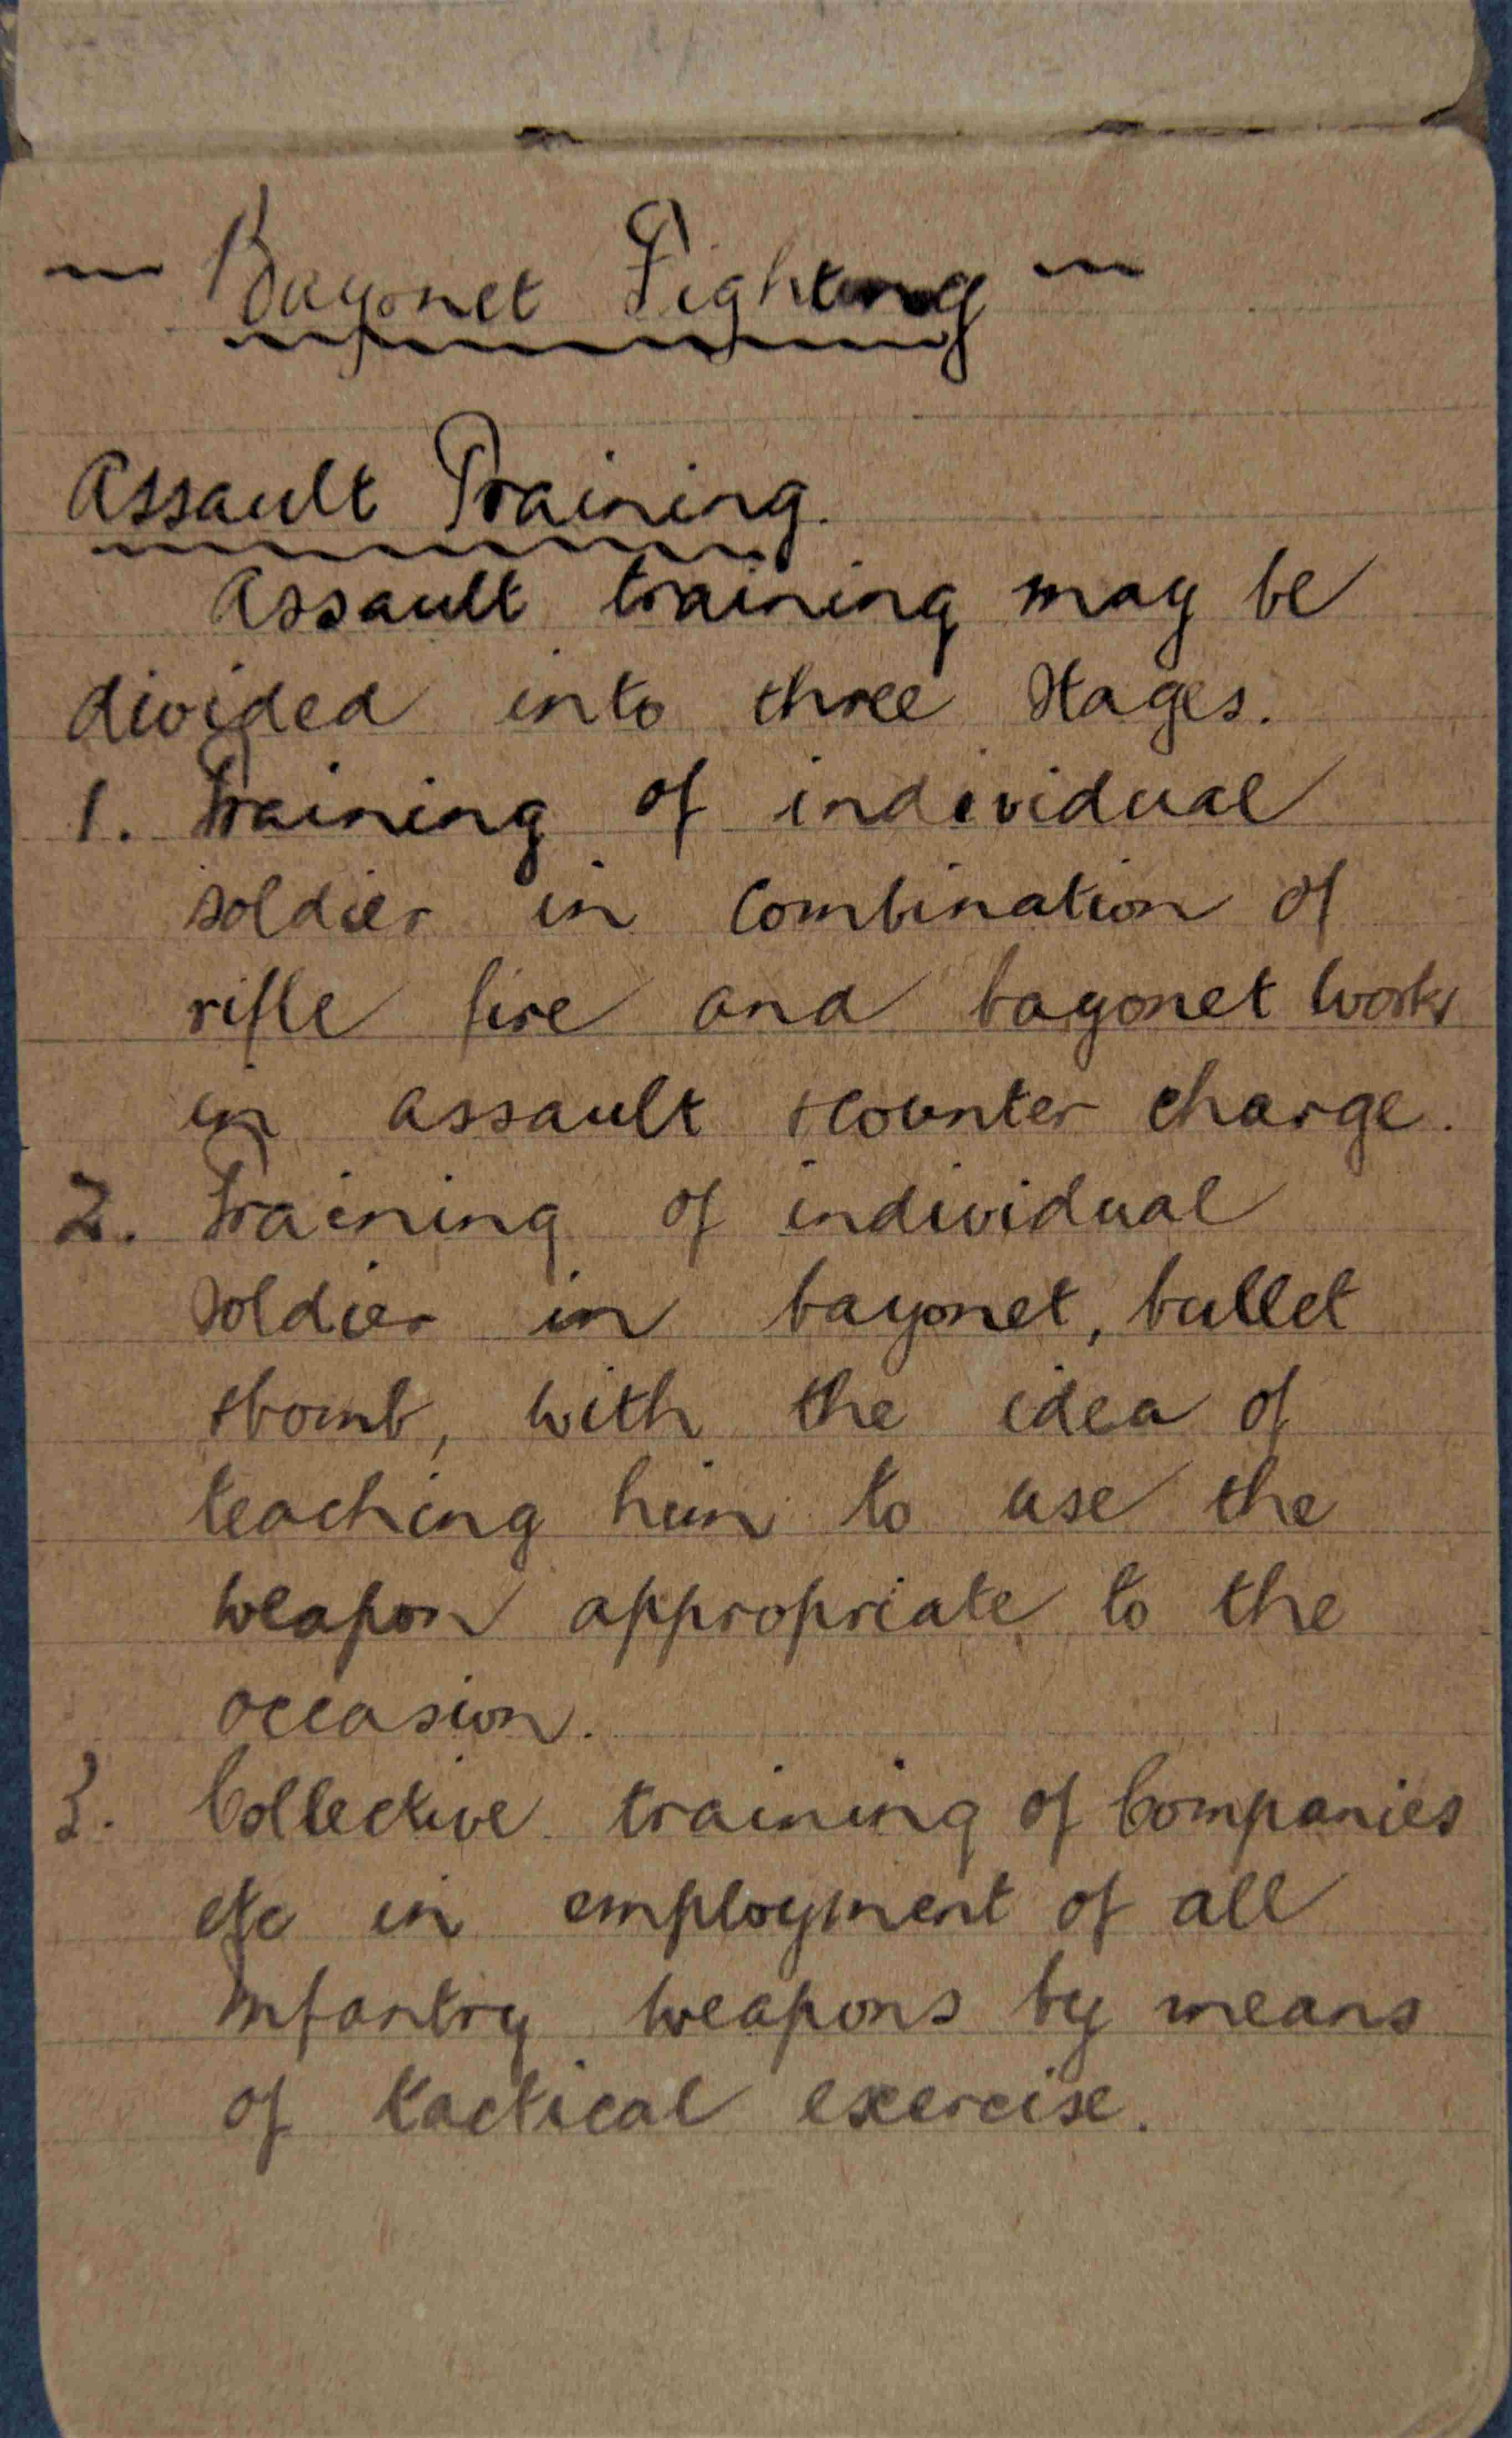 — Bayonet Fighting —
Assault Training.
Assault training may be
divided into three stages.
1. Training of individual
soldier in combination of
rifle fire and bayonet work
in assault + counter charge.
2. Training of individual
soldier in bayonet, bullet
+ bomb, with the idea of
teaching him to use the
weapon appropriate to the
occasion.
3. Collective training of Companies
etc in employment of all
Infantry weapons by means
of tactical exercise.